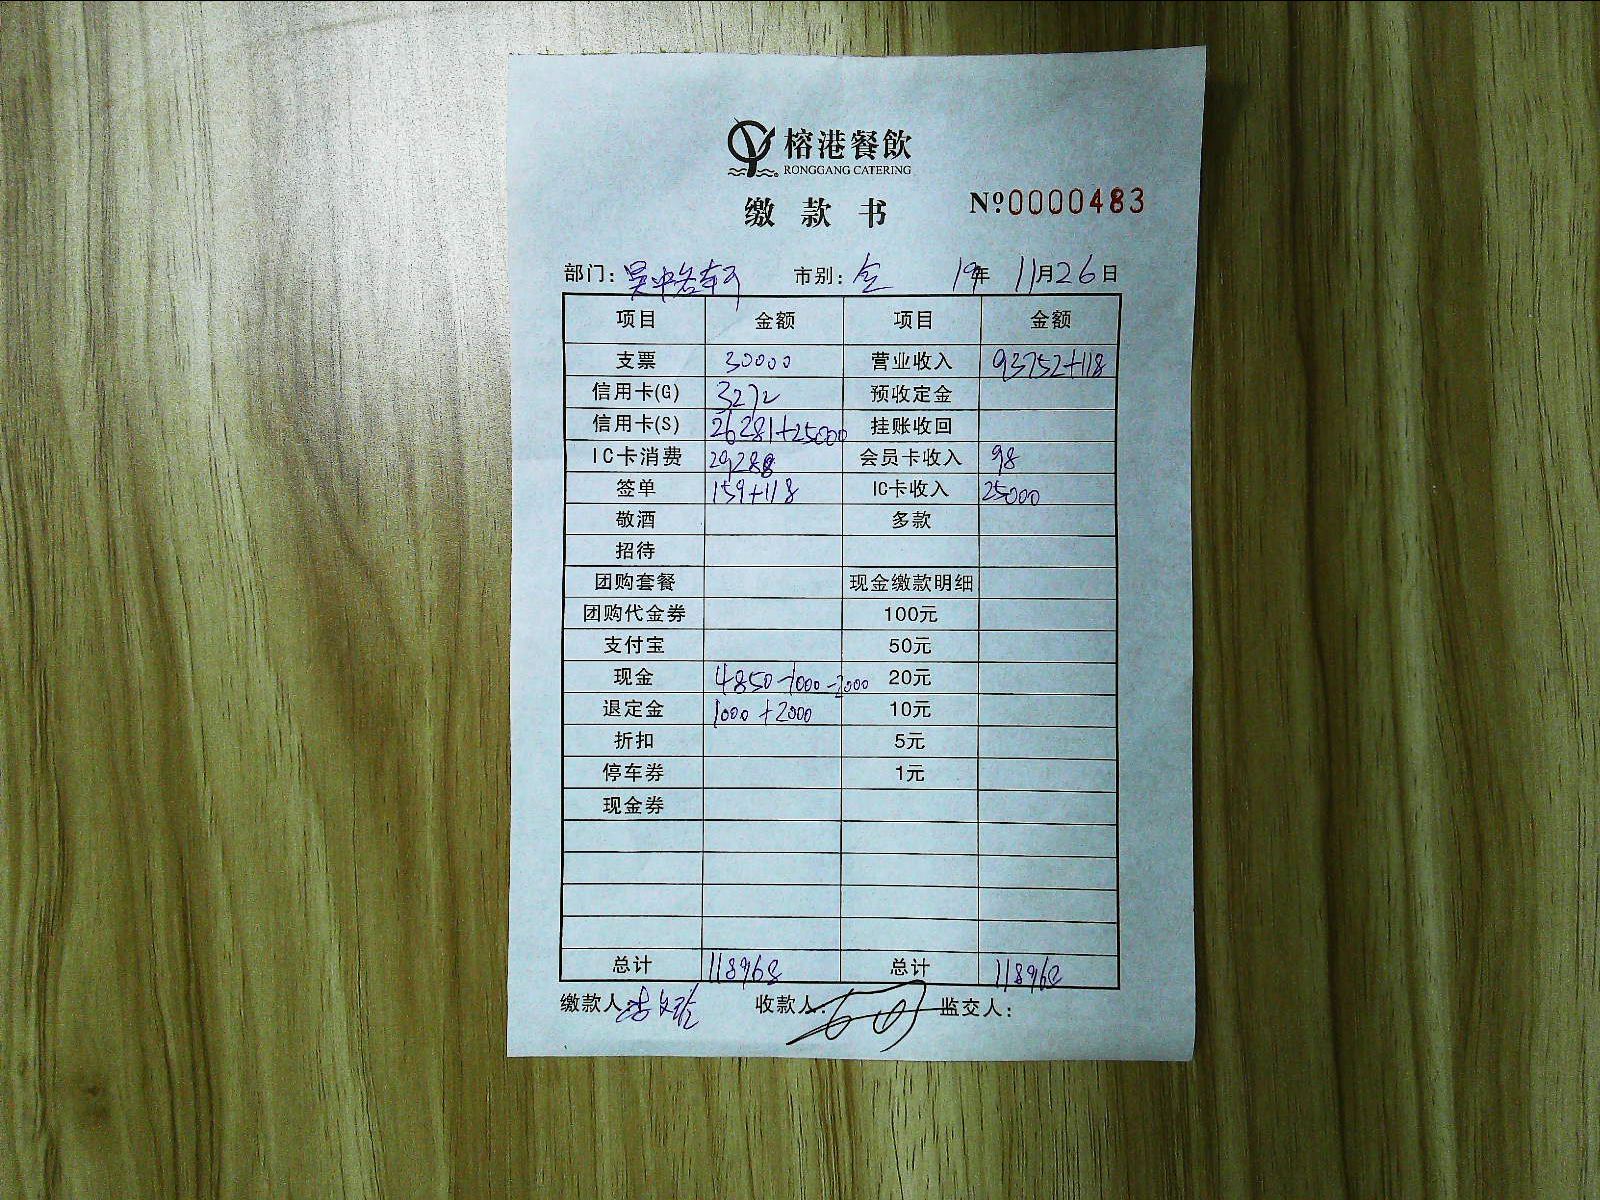 榕港餐飲
RONGGANG CATERING
缴款书 №0000483
部门: 吴中 市别: 全 19年 11月26日
项目 金额 项目 金额
支票 30000 营业收入 93752+118
信用卡(G) 3272 预收定金
信用卡(S) 26281+25000 挂账收回
IC卡消费 29288 会员卡收入 98
签单 159+118 IC卡收入 25000
敬酒 多款
招待
团购套餐 现金缴款明细
团购代金券 100元
支付宝 50元
现金 4850-1000-2000 20元
退定金 1000+2000 10元
折扣 5元
停车券 1元
现金券
总计 118968 总计 118968
缴款人: 收款人: 监交人: